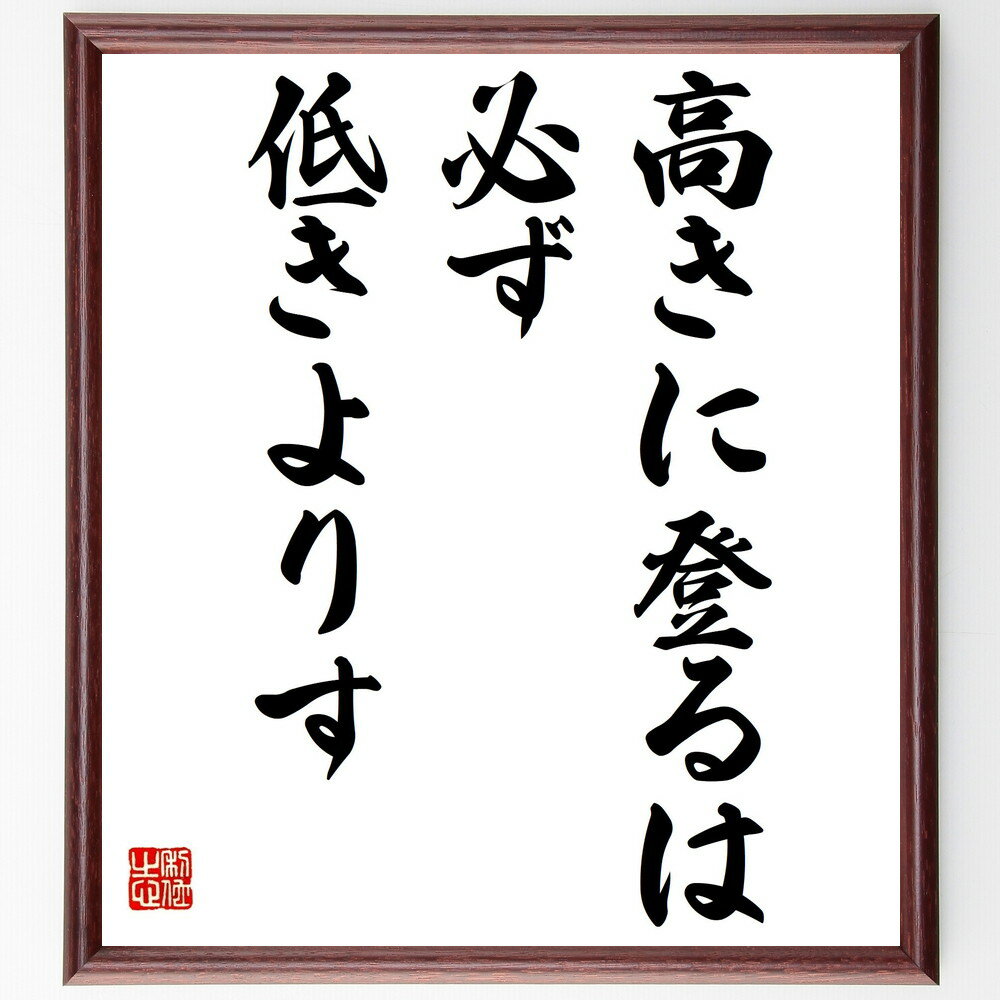 高きに登るは
必ず
低きよりす